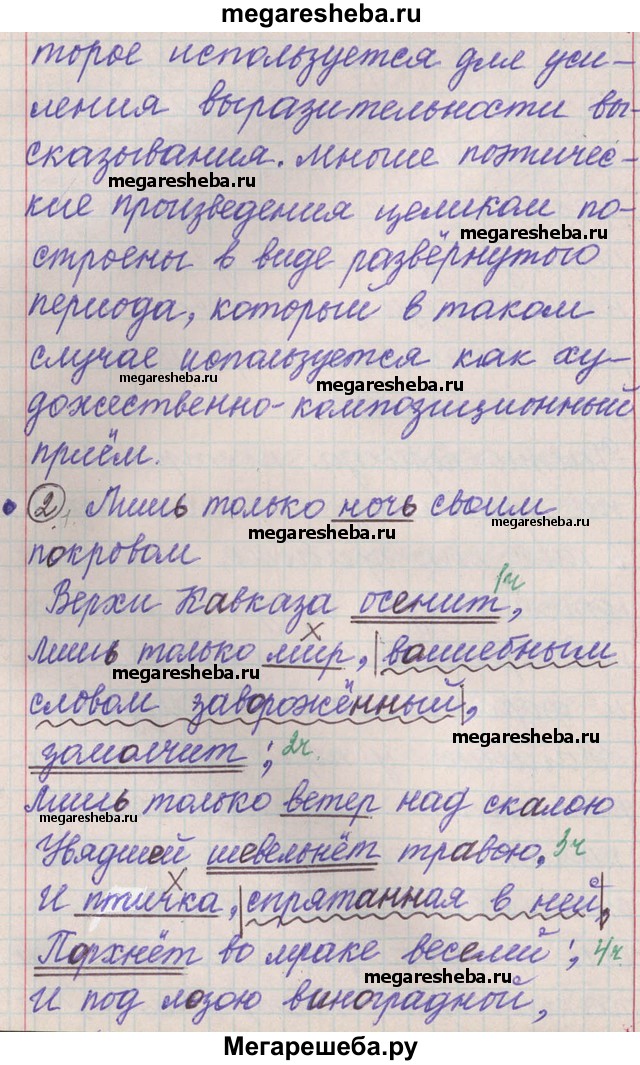 megaresheba.ru
торое используется для уси-
ления выразительности вы-
сказывания. Многие поэтичес-
megaresheba.ru
кие произведения целиком по-
megaresheba.ru
строены в виде развёрнутого
периода, который в таком
случае используется как ху-
megaresheba.ru
megaresheba.ru
дожественно-композиционный
приём.
2 Лишь только ночь своим
megaresheba.ru
покровом
1ч
Верхи Кавказа осенит,
х
Лишь только мир, волшебным
megaresheba.ru
словом заворожённый,
megaresheba.ru
замолчит; 2ч.
Лишь только ветер над скалою
megaresheba.ru
Увядшей шевельнёт травою, 3ч
х
И птичка, спрятанная в ней,
Порхнёт во мраке веселей; 4ч.
megaresheba.ru
И под лозою виноградной,
megaresheba.ru
Мегарешеба.ру